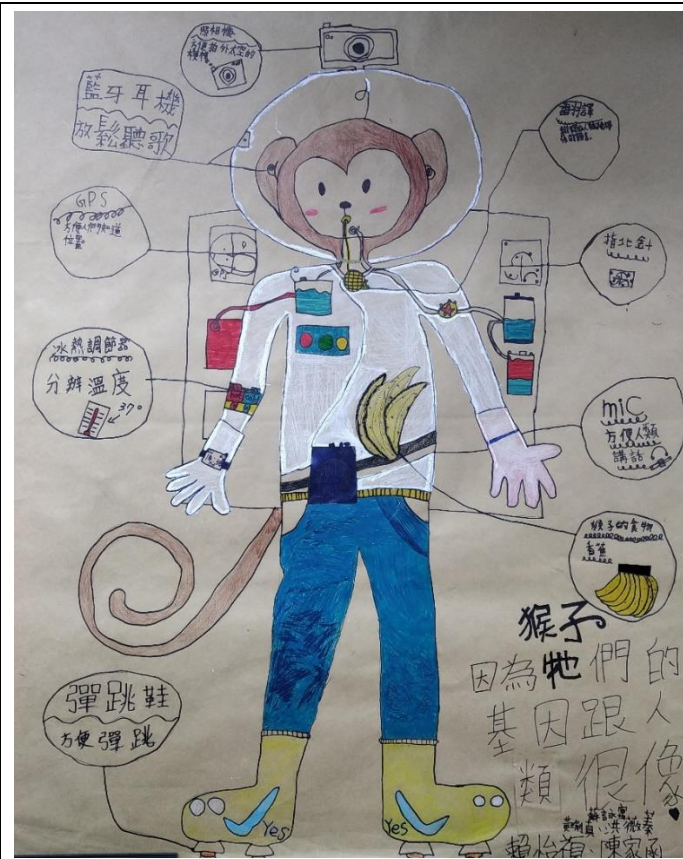 照相機
方便拍外太空的
模樣
藍牙耳機
放鬆聽歌
GPS
方便人們知道
位置
GPS
冰熱調節器
分辦溫度
37°
彈跳鞋
方便彈跳
指北針
mic
方便人類
講話
猴子的食物
香蕉
猴子
因為牠們的
基因跟人
類很像
Yes
Yes
賴怡璇、陳家函